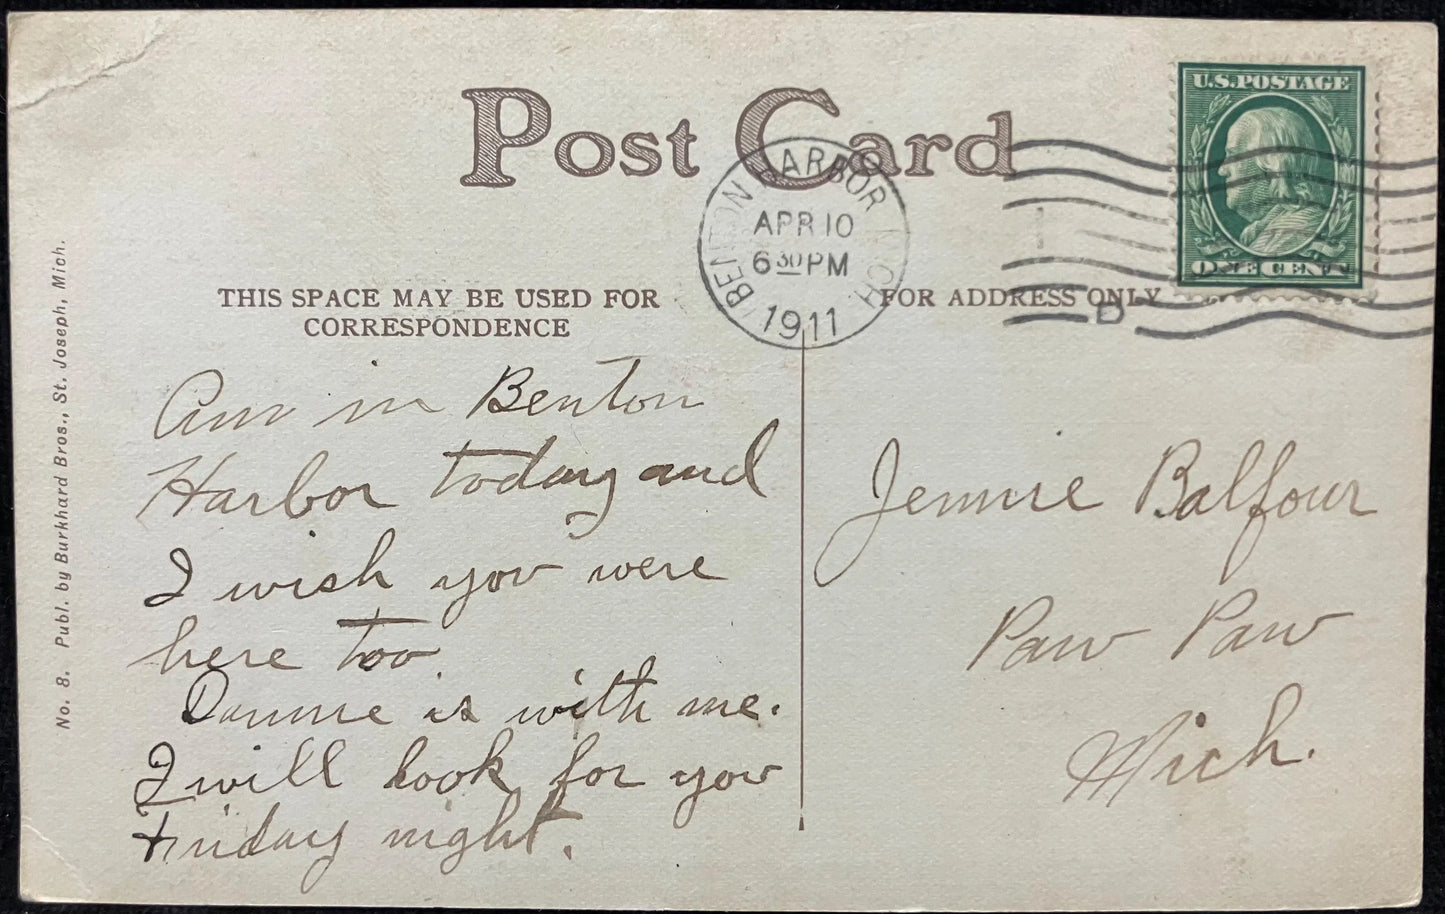 Post Card
U.S. POSTAGE
ONE CENT
BENTON HARBOR MICH
APR 10
6 30 PM
1911
D
THIS SPACE MAY BE USED FOR
CORRESPONDENCE
FOR ADDRESS ONLY
No. 8. Publ. by Burkhard Bros., St. Joseph, Mich.
Am in Benton
Harbor today and
I wish you were
here too
Dannie is with me.
I will look for you
Friday night.
Jennie Balfour
Paw Paw
Mich.